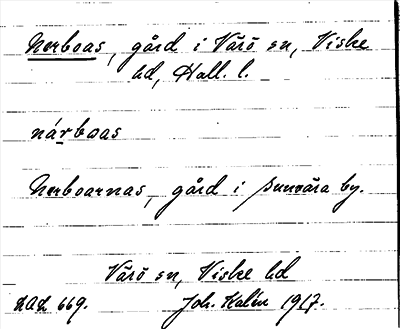 Norboas, gård i Värö sn, Viske
hd, Hall. l.
nárboas
Norboarnas, gård i Sunvära by.
Värö sn, Viske hd
DAL 669. Joh. Kalén 1917.